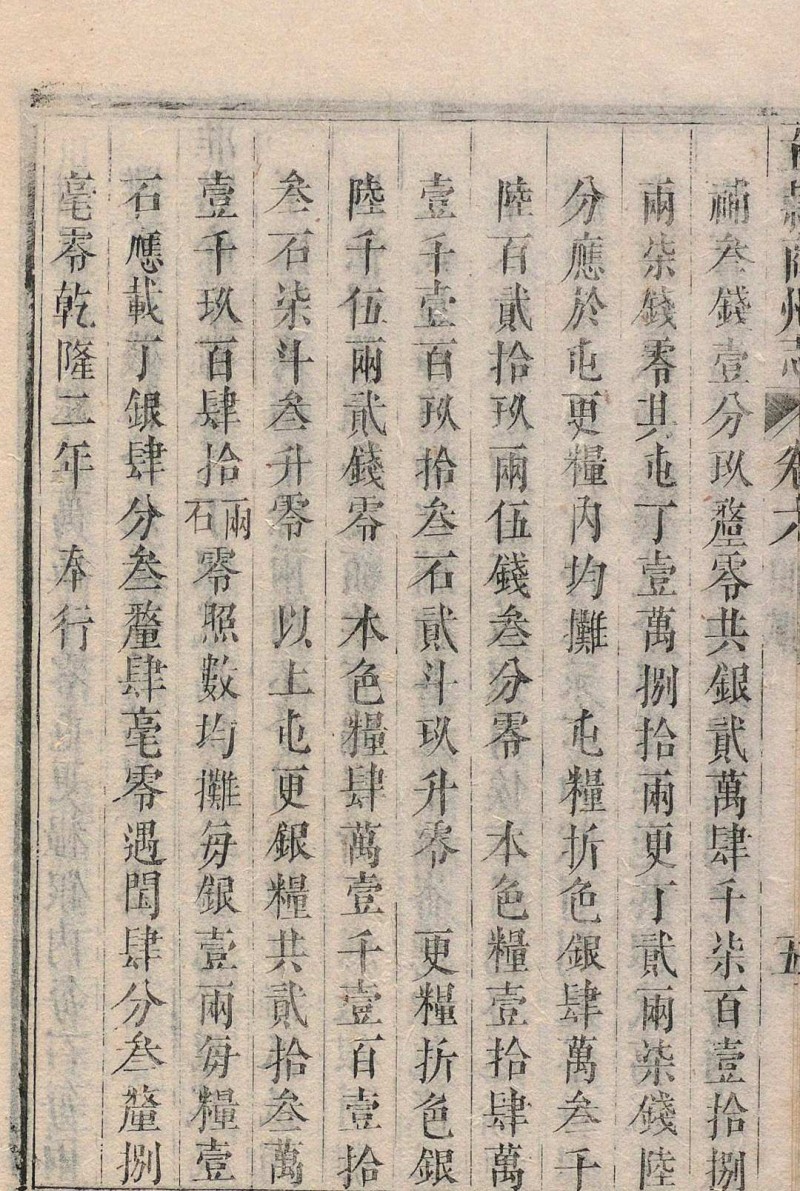 州志 卷六 五
補叁錢壹分玖釐零共銀貳萬肆千柒百壹拾捌
兩柒錢零其屯丁壹萬捌拾兩更丁貳兩柒錢陸
分應於屯更糧內均攤 屯糧折色銀肆萬叁千
陸百貳拾玖兩伍錢叁分零 本色糧壹拾肆萬
壹千壹百玖拾叁石貳斗玖升零 更糧折色銀
陸千伍兩貳錢零 本色糧肆萬壹千壹百壹拾
叁石柒斗叁升零 以上屯更銀糧共貳拾叁萬
壹千玖百肆拾兩石零照數均攤每銀壹兩每糧壹
石應載丁銀肆分叁釐肆毫零遇閏肆分叁釐捌
毫零乾隆二年 奉行